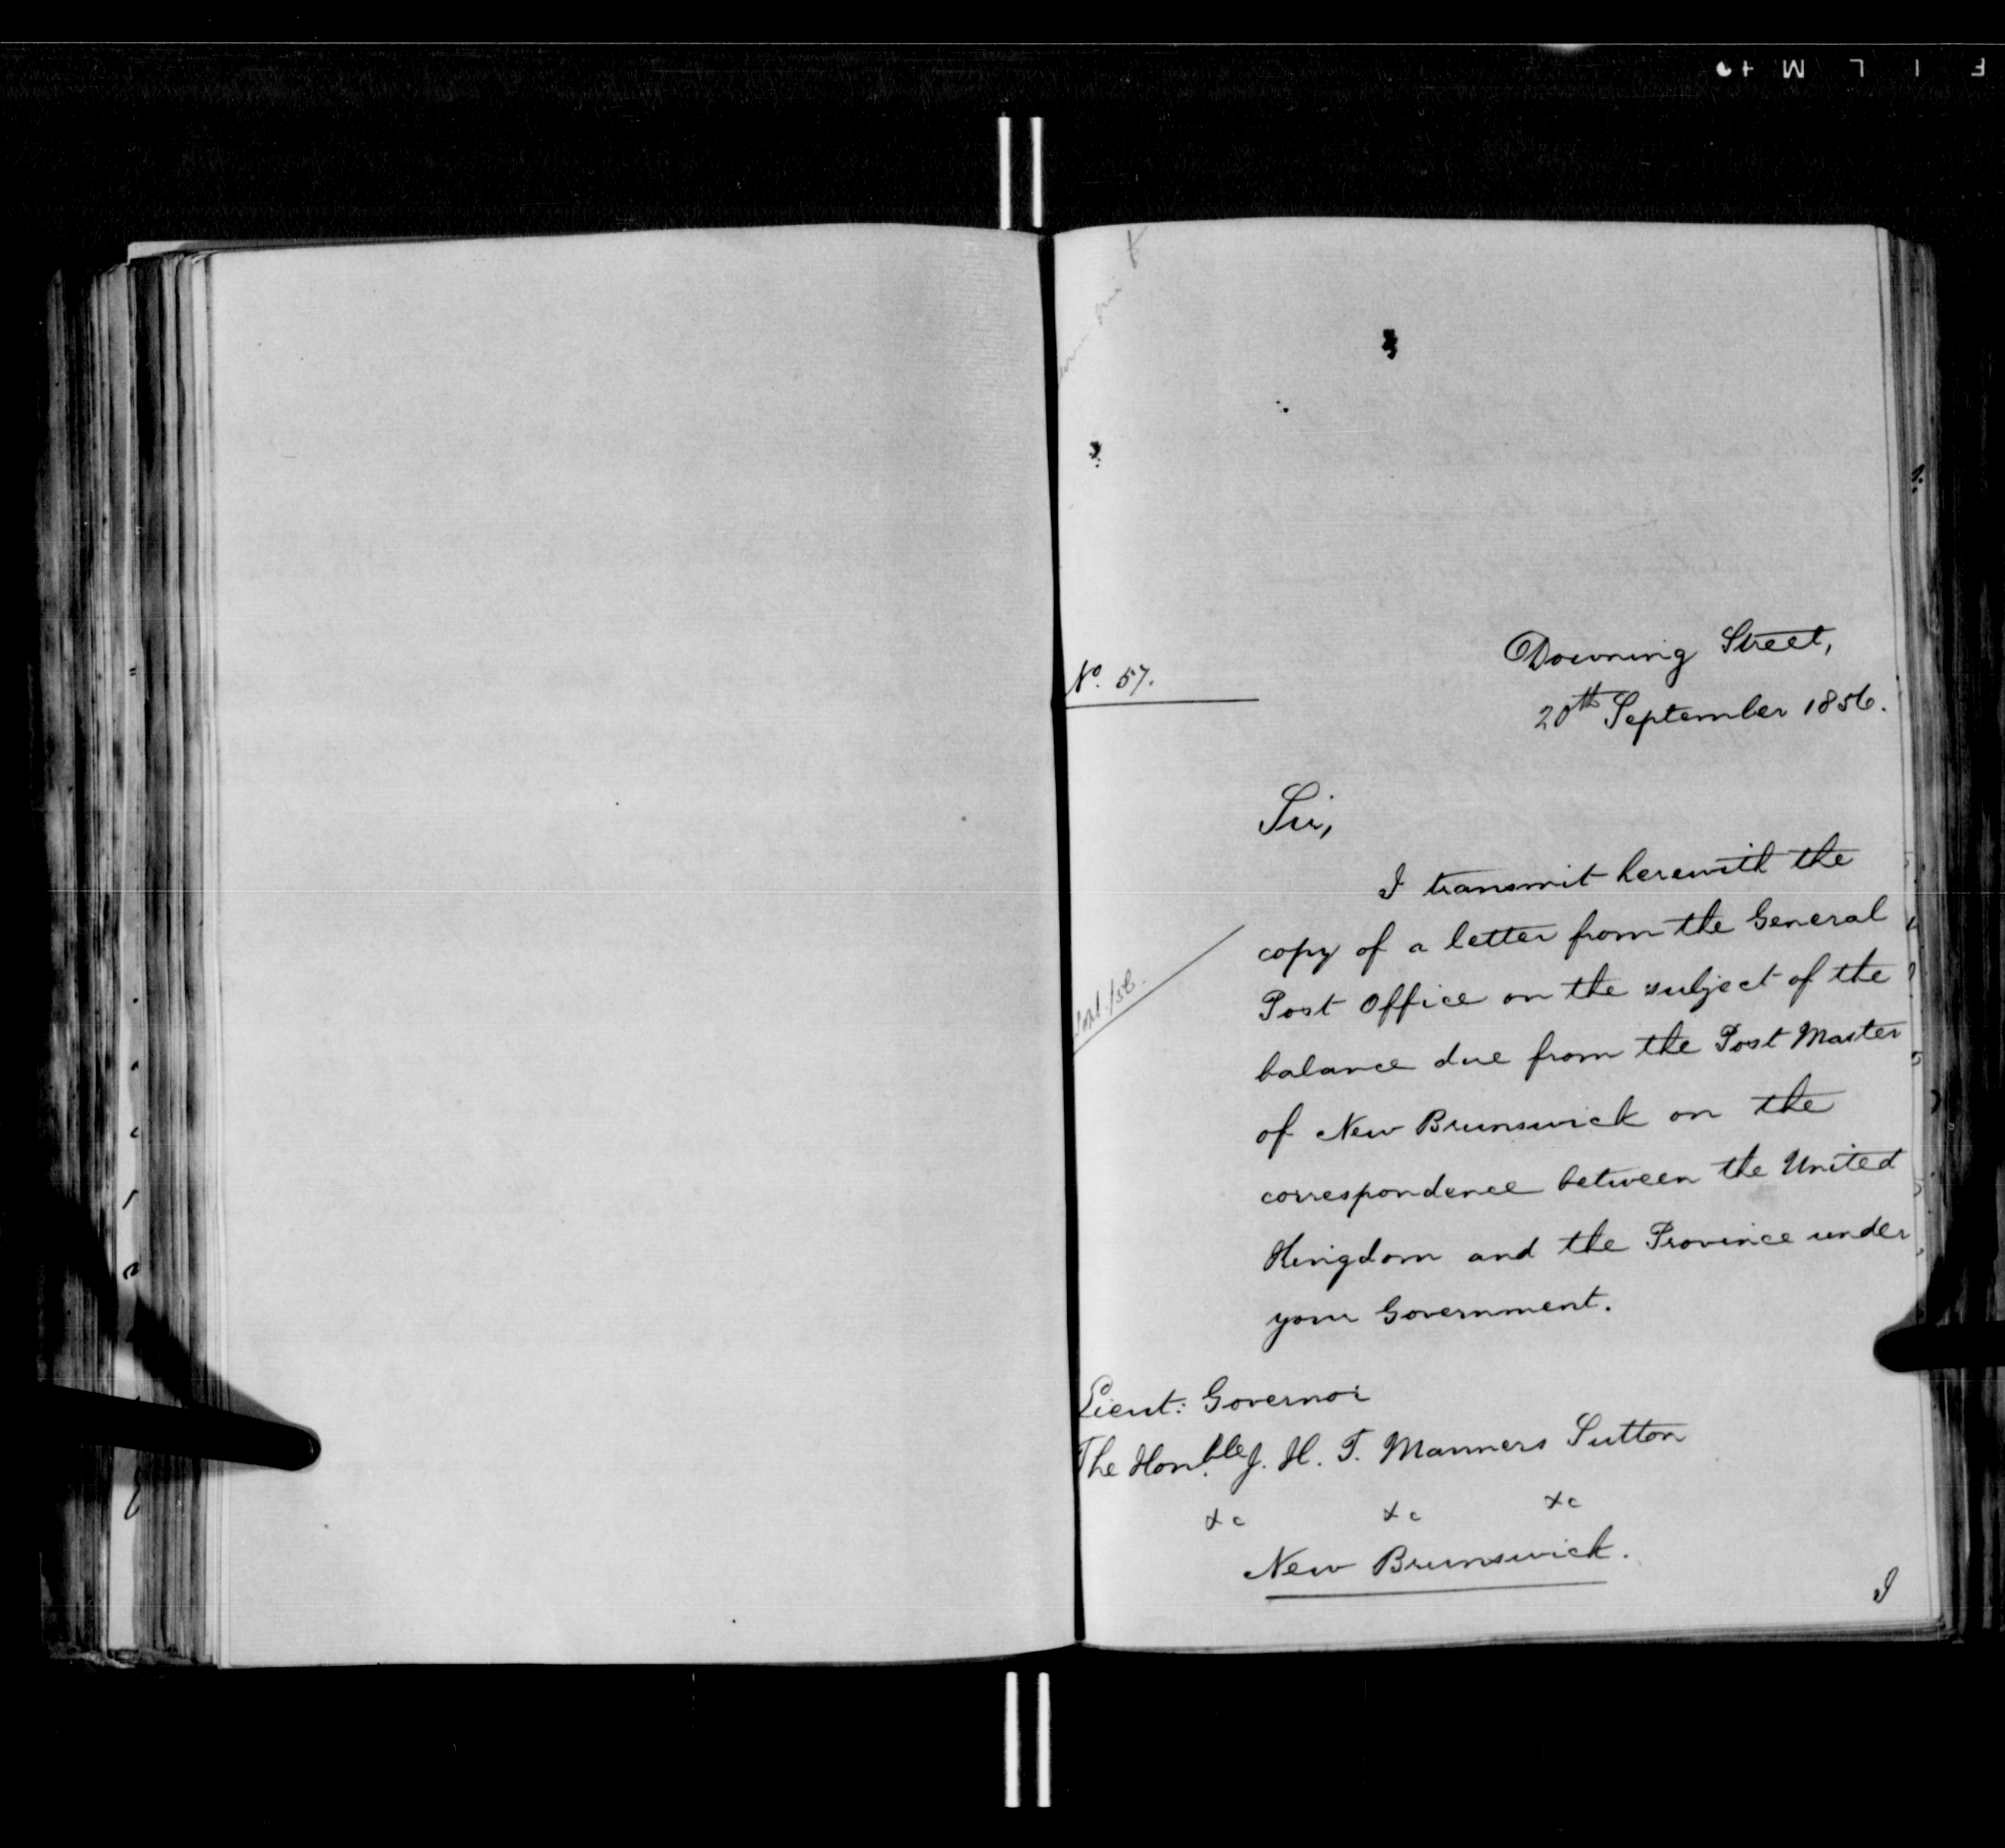 No. 57.
Downing Street,
20th September 1856.
Sir,
I transmit herewith the
copy of a letter from the General
Post Office on the subject of the
balance due from the Post Master
of New Brunswick on the
correspondence between the United
Kingdom and the Province under
your Government.
Sept./56.
Lieut: Governor
The Honble J. H. T. Manners Sutton
&c &c &c
New Brunswick.
I